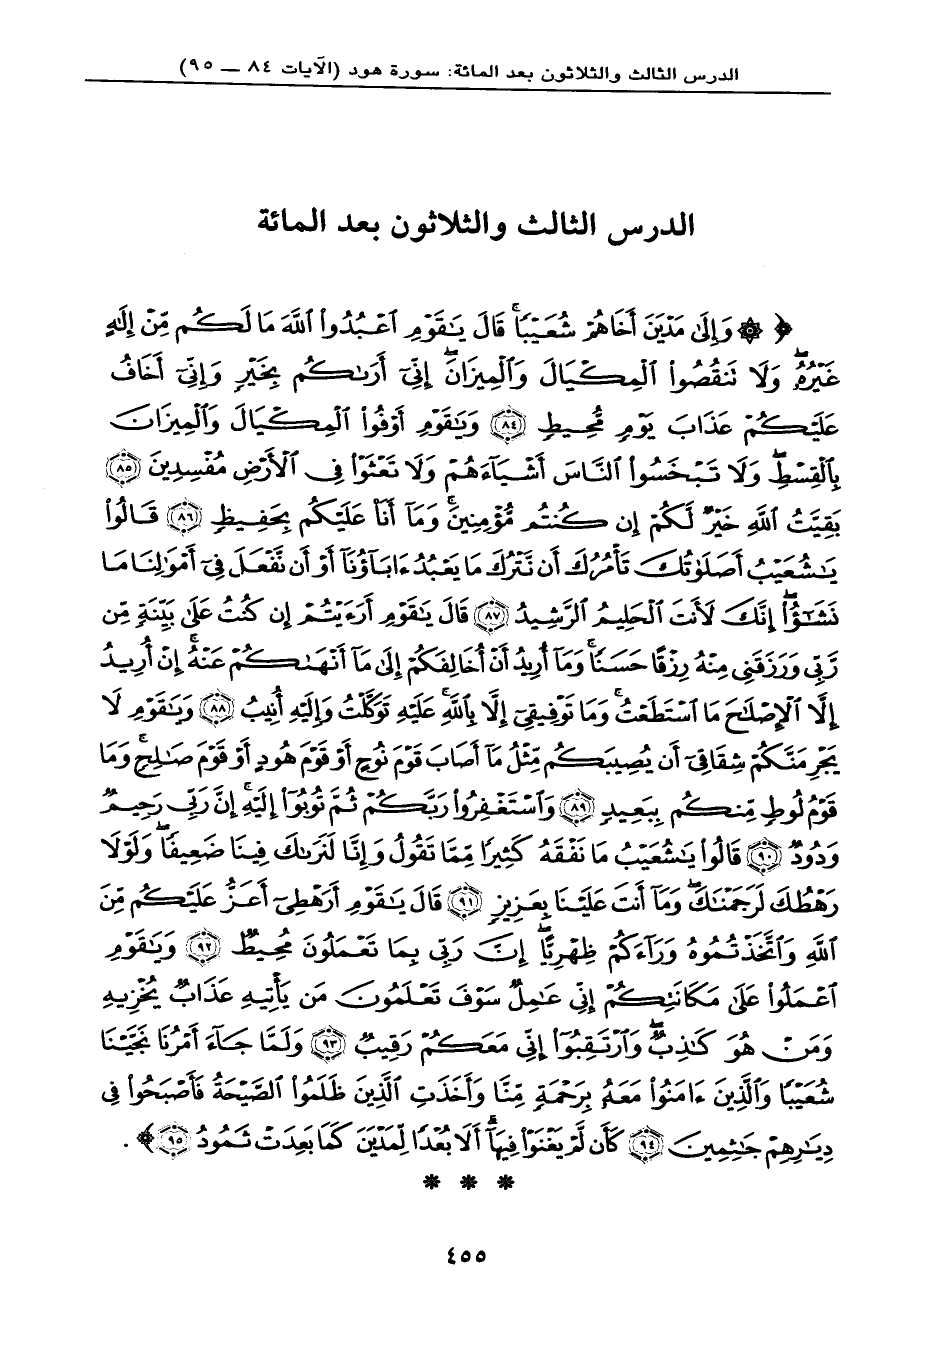 الدرس الثالث والثلاثون بعد المائة: سورة هود (الآيات ٨٤ — ٩٥)
الدرس الثالث والثلاثون بعد المائة
﴿ ۞ وَإِلَىٰ مَدْيَنَ أَخَاهُمْ شُعَيْبًا ۚ قَالَ يَـٰقَوْمِ ٱعْبُدُوا۟ ٱللَّهَ مَا لَكُم مِّنْ إِلَـٰهٍ
غَيْرُهُۥ ۖ وَلَا تَنقُصُوا۟ ٱلْمِكْيَالَ وَٱلْمِيزَانَ ۖ إِنِّىٓ أَرَىٰكُم بِخَيْرٍ وَإِنِّىٓ أَخَافُ
عَلَيْكُمْ عَذَابَ يَوْمٍ مُّحِيطٍ ﴿٨٤﴾ وَيَـٰقَوْمِ أَوْفُوا۟ ٱلْمِكْيَالَ وَٱلْمِيزَانَ
بِٱلْقِسْطِ ۖ وَلَا تَبْخَسُوا۟ ٱلنَّاسَ أَشْيَآءَهُمْ وَلَا تَعْثَوْا۟ فِى ٱلْأَرْضِ مُفْسِدِينَ ﴿٨٥﴾
بَقِيَّتُ ٱللَّهِ خَيْرٌ لَّكُمْ إِن كُنتُم مُّؤْمِنِينَ ۚ وَمَآ أَنَا۠ عَلَيْكُم بِحَفِيظٍ ﴿٨٦﴾ قَالُوا۟
يَـٰشُعَيْبُ أَصَلَوٰتُكَ تَأْمُرُكَ أَن نَّتْرُكَ مَا يَعْبُدُ ءَابَآؤُنَآ أَوْ أَن نَّفْعَلَ فِىٓ أَمْوَٰلِنَا مَا
نَشَـٰٓؤُا۟ ۖ إِنَّكَ لَأَنتَ ٱلْحَلِيمُ ٱلرَّشِيدُ ﴿٨٧﴾ قَالَ يَـٰقَوْمِ أَرَءَيْتُمْ إِن كُنتُ عَلَىٰ بَيِّنَةٍ مِّن
رَّبِّى وَرَزَقَنِى مِنْهُ رِزْقًا حَسَنًا ۚ وَمَآ أُرِيدُ أَنْ أُخَالِفَكُمْ إِلَىٰ مَآ أَنْهَىٰكُمْ عَنْهُ ۚ إِنْ أُرِيدُ
إِلَّا ٱلْإِصْلَـٰحَ مَا ٱسْتَطَعْتُ ۚ وَمَا تَوْفِيقِىٓ إِلَّا بِٱللَّهِ ۚ عَلَيْهِ تَوَكَّلْتُ وَإِلَيْهِ أُنِيبُ ﴿٨٨﴾ وَيَـٰقَوْمِ لَا
يَجْرِمَنَّكُمْ شِقَاقِىٓ أَن يُصِيبَكُم مِّثْلُ مَآ أَصَابَ قَوْمَ نُوحٍ أَوْ قَوْمَ هُودٍ أَوْ قَوْمَ صَـٰلِحٍ ۚ وَمَا
قَوْمُ لُوطٍ مِّنكُم بِبَعِيدٍ ﴿٨٩﴾ وَٱسْتَغْفِرُوا۟ رَبَّكُمْ ثُمَّ تُوبُوٓا۟ إِلَيْهِ ۚ إِنَّ رَبِّى رَحِيمٌ
وَدُودٌ ﴿٩٠﴾ قَالُوا۟ يَـٰشُعَيْبُ مَا نَفْقَهُ كَثِيرًا مِّمَّا تَقُولُ وَإِنَّا لَنَرَىٰكَ فِينَا ضَعِيفًا ۖ وَلَوْلَا
رَهْطُكَ لَرَجَمْنَـٰكَ ۖ وَمَآ أَنتَ عَلَيْنَا بِعَزِيزٍ ﴿٩١﴾ قَالَ يَـٰقَوْمِ أَرَهْطِىٓ أَعَزُّ عَلَيْكُم مِّنَ
ٱللَّهِ وَٱتَّخَذْتُمُوهُ وَرَآءَكُمْ ظِهْرِيًّا ۖ إِنَّ رَبِّى بِمَا تَعْمَلُونَ مُحِيطٌ ﴿٩٢﴾ وَيَـٰقَوْمِ
ٱعْمَلُوا۟ عَلَىٰ مَكَانَتِكُمْ إِنِّى عَـٰمِلٌ ۖ سَوْفَ تَعْلَمُونَ مَن يَأْتِيهِ عَذَابٌ يُخْزِيهِ
وَمَنْ هُوَ كَـٰذِبٌ ۖ وَٱرْتَقِبُوٓا۟ إِنِّى مَعَكُمْ رَقِيبٌ ﴿٩٣﴾ وَلَمَّا جَآءَ أَمْرُنَا نَجَّيْنَا
شُعَيْبًا وَٱلَّذِينَ ءَامَنُوا۟ مَعَهُۥ بِرَحْمَةٍ مِّنَّا وَأَخَذَتِ ٱلَّذِينَ ظَلَمُوا۟ ٱلصَّيْحَةُ فَأَصْبَحُوا۟ فِى
دِيَـٰرِهِمْ جَـٰثِمِينَ ﴿٩٤﴾ كَأَن لَّمْ يَغْنَوْا۟ فِيهَآ ۗ أَلَا بُعْدًا لِّمَدْيَنَ كَمَا بَعِدَتْ ثَمُودُ ﴿٩٥﴾ ﴾ .
* * *
٤٥٥